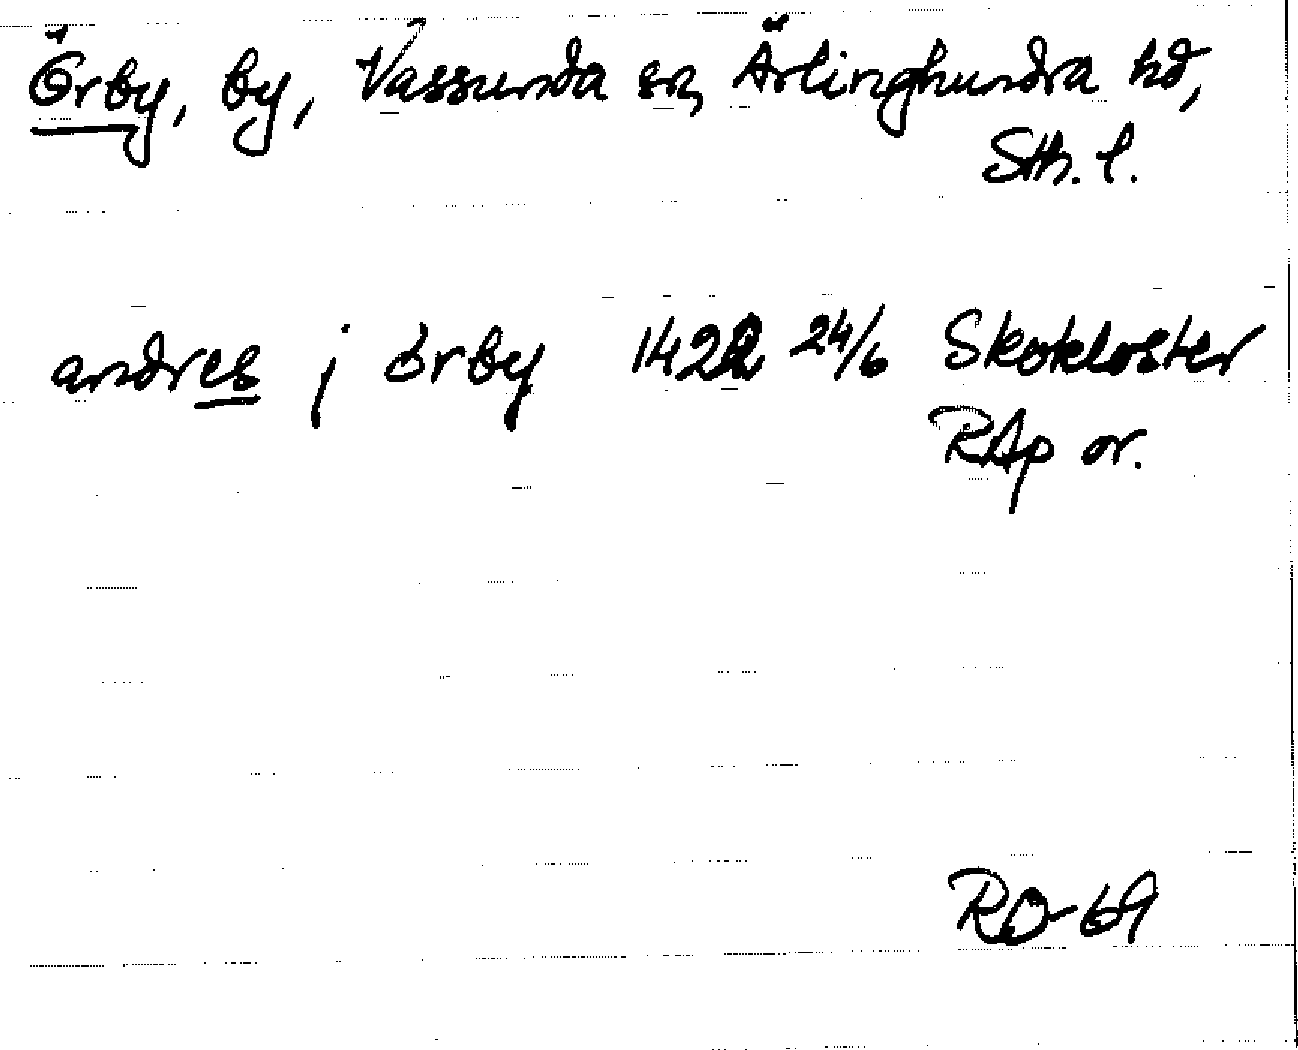 Örby, by, Vassunda sn, Ärlinghundra hd,
Sth. l.
andres j örby 1422 24/6 Skokloster
RAp or.
RO-69